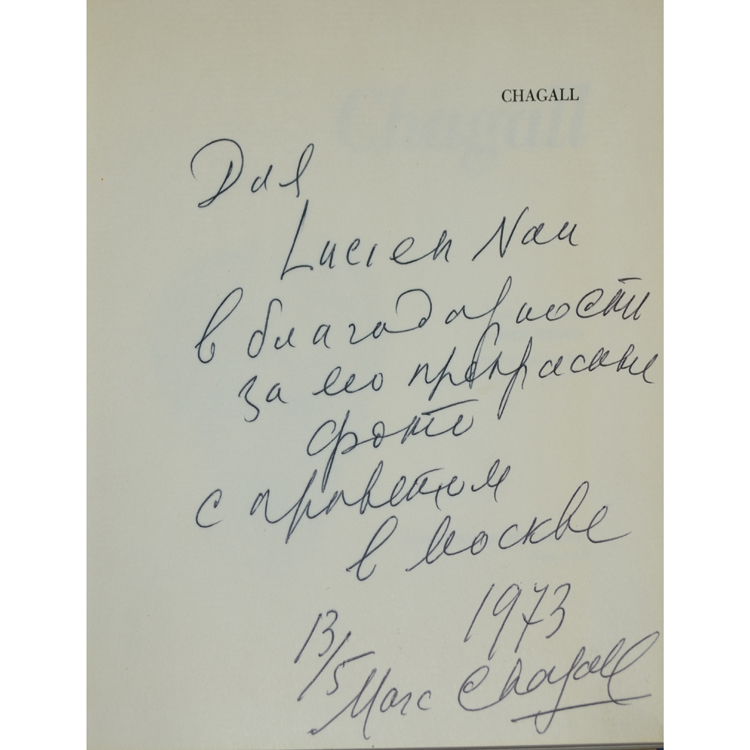 CHAGALL
Для
Lucien Nau
в благодарности
за его прекрасные
фото
с приветом
в Москве
1973
13/5
Marc Chagall